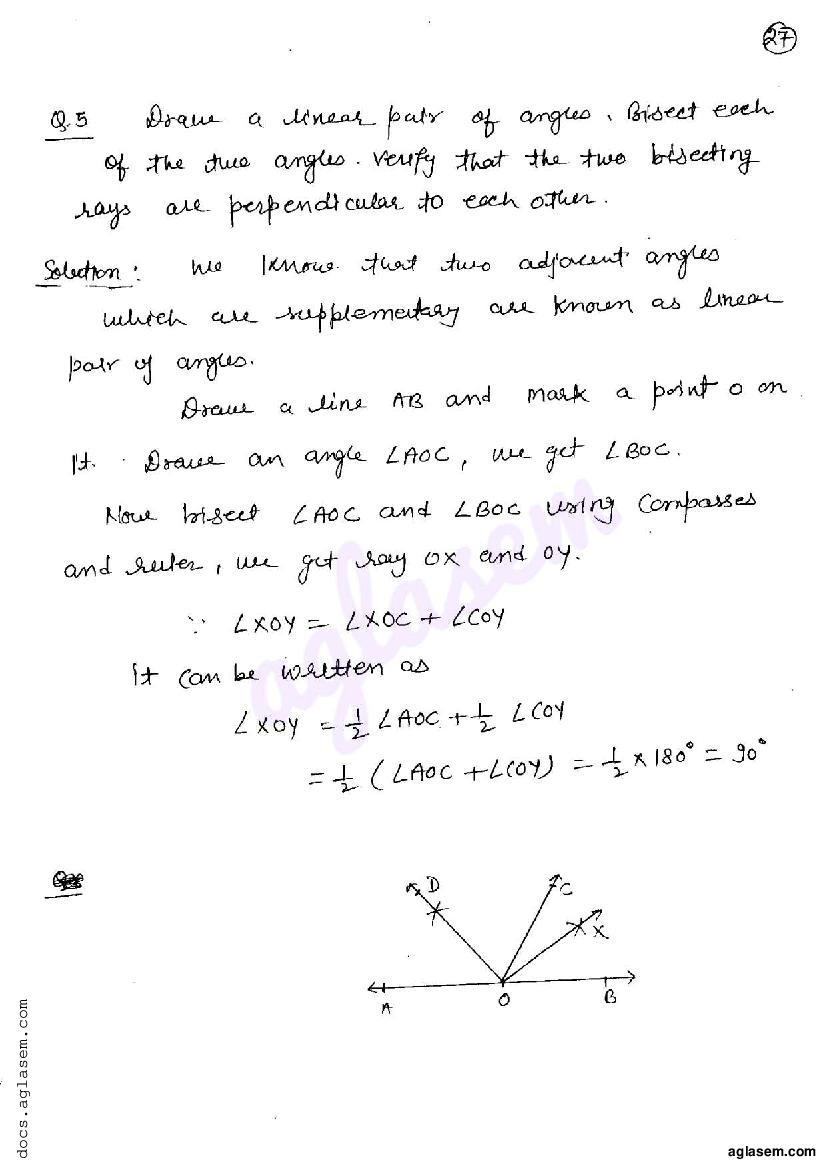 27
Q.5 Draw a linear pair of angles. Bisect each
of the two angles. Verify that the two bisecting
rays are perpendicular to each other.
Solution: We know that two adjacent angles
which are supplementary are known as linear
pair of angles.
Draw a line AB and mark a point O on
it. Draw an angle ∠AOC, we get ∠BOC.
Now bisect ∠AOC and ∠BOC using compasses
and ruler, we get ray OX and OY.
∵ ∠XOY = ∠XOC + ∠COY
It can be written as
∠XOY = 1/2 ∠AOC + 1/2 ∠COY
= 1/2 (∠AOC + ∠COY) = 1/2 × 180° = 90°
D
C
X
A
O
B
aglasem
docs.aglasem.com
aglasem.com